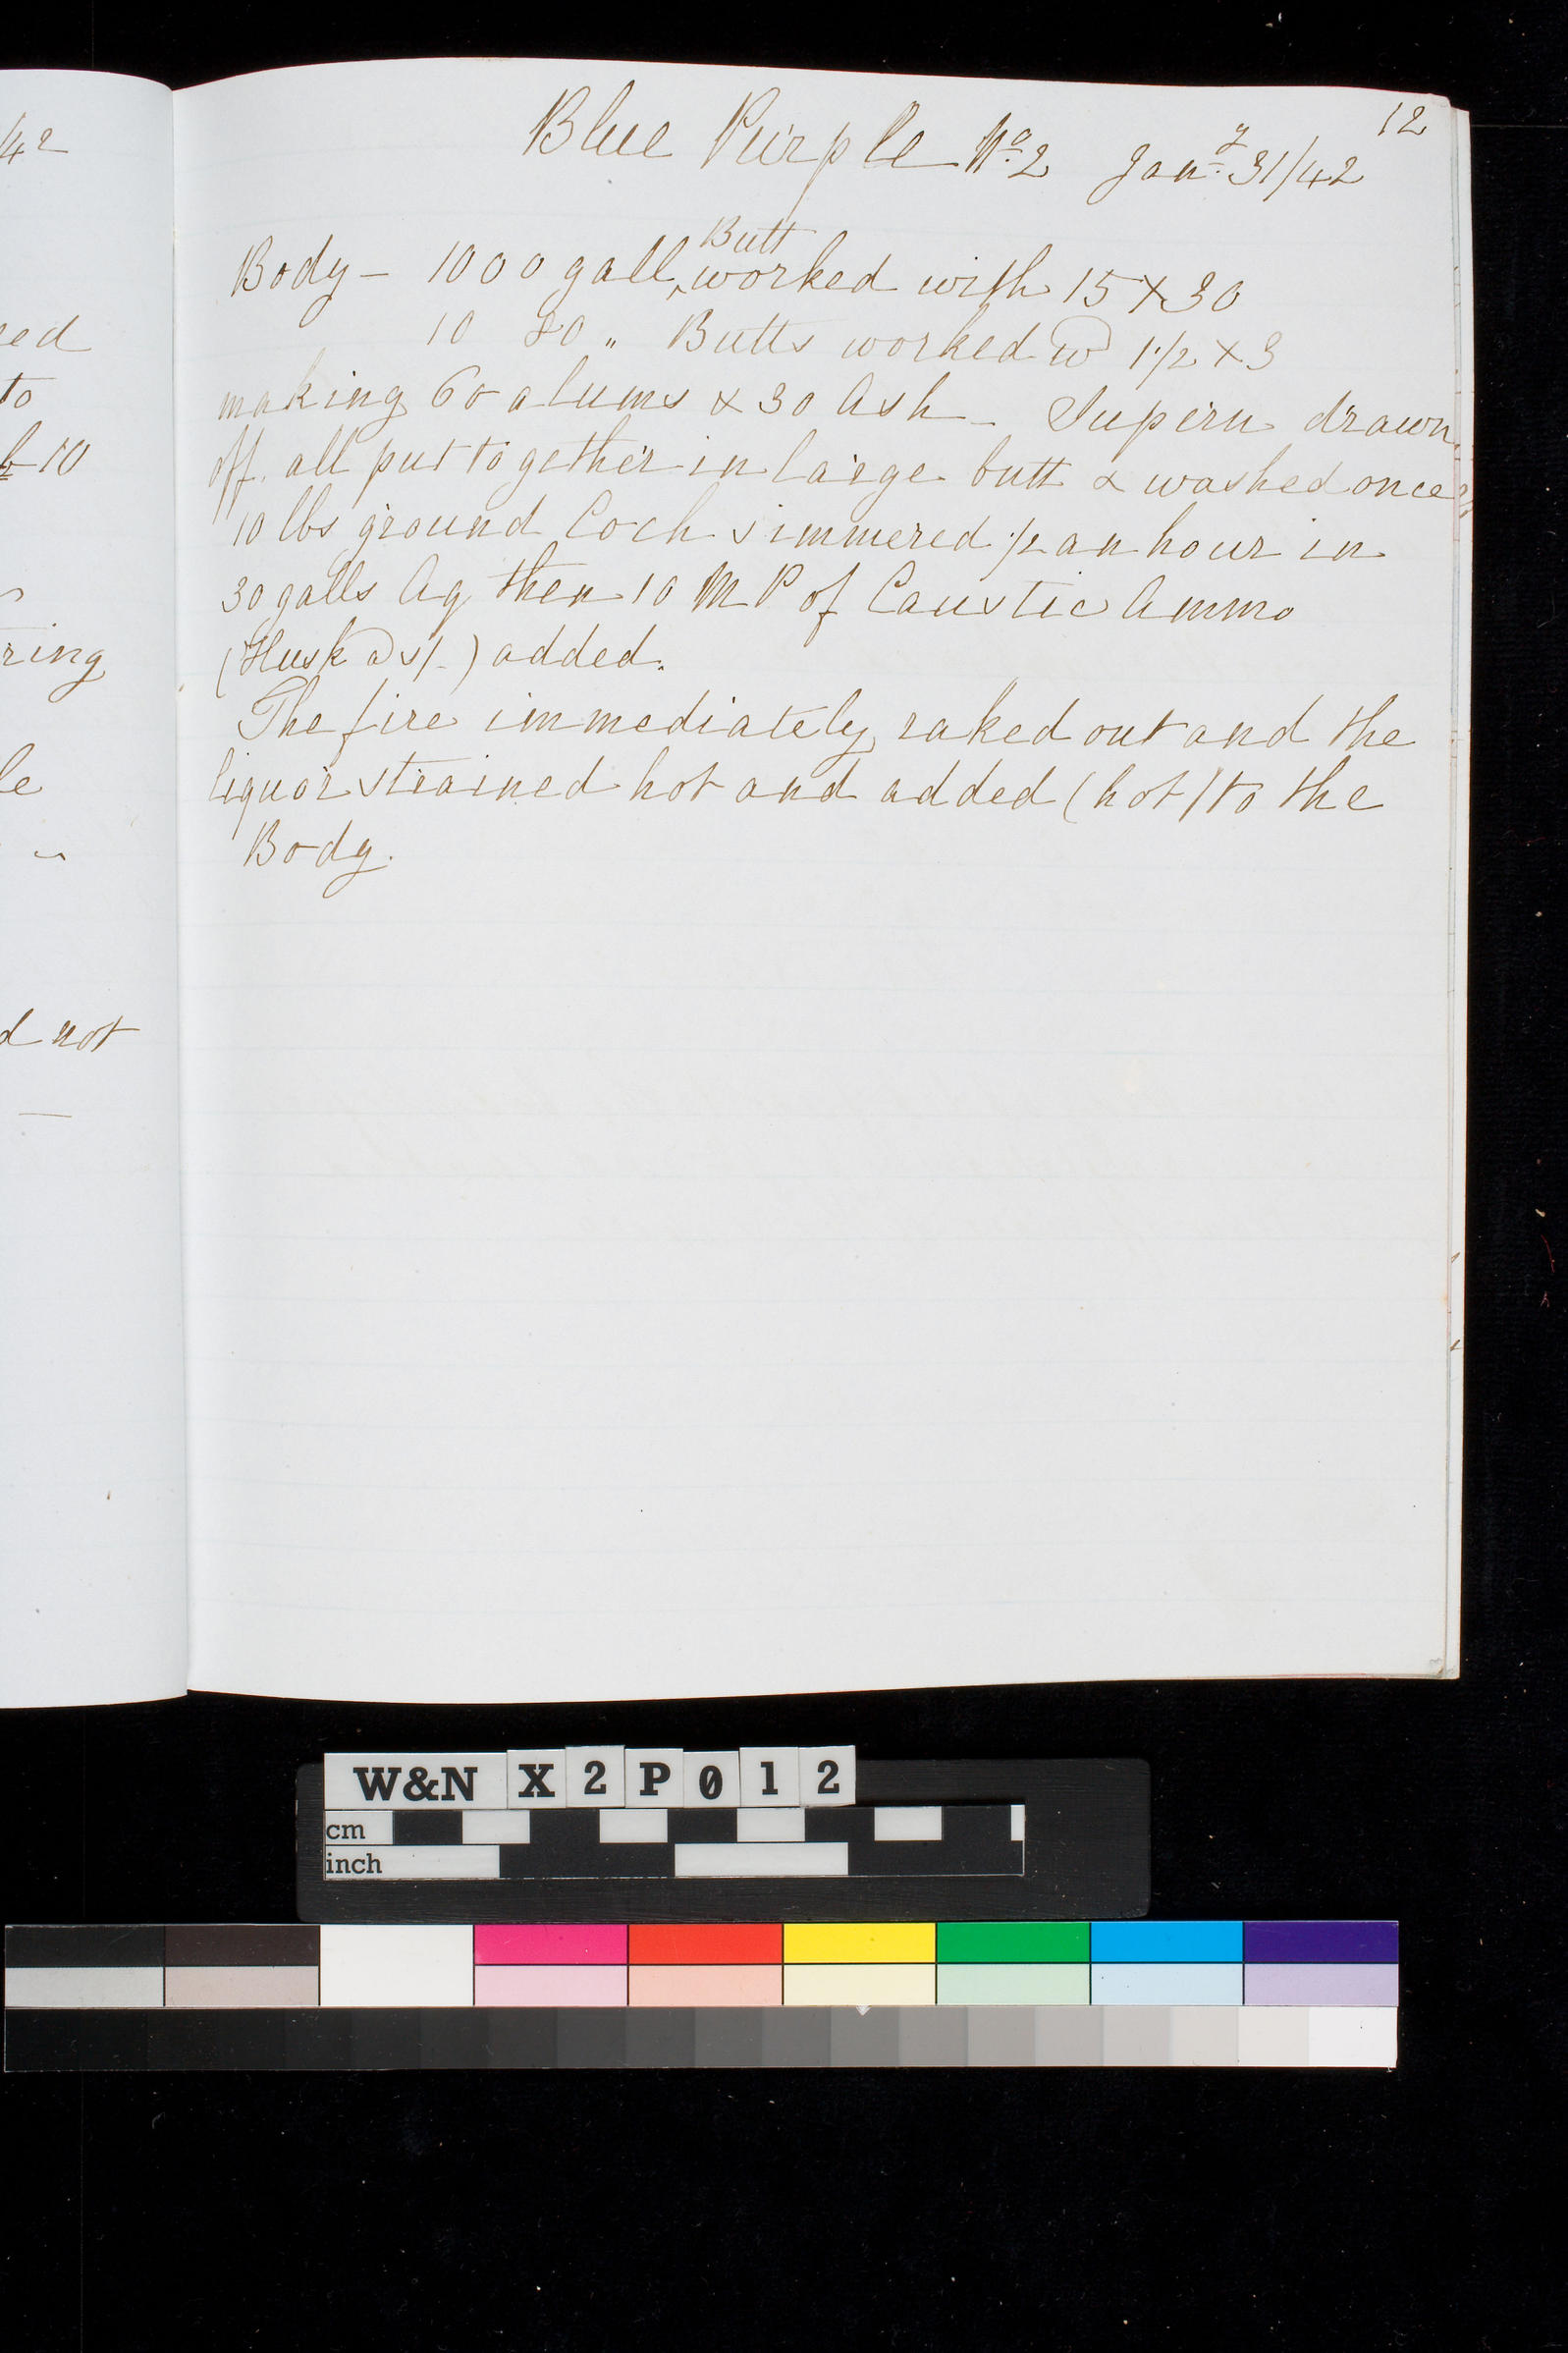 12
Blue Purple No 2 Jany 31/42
Butt
Body - 1000 gall, worked with 15 x 30
10 80 " Butts worked w 1 1/2 x 3
making 60 alums & 30 Ash - Supern drawn
off. all put together in large butt & washed once
10 lbs ground Coch simmered 1/2 an hour in
30 galls Aq then 10 M P of Caustic Ammo
(Husk @ s/-) added.
The fire immediately raked out and the
liquor strained hot and added (hot) to the
Body.
/42
ed
to
10
ring
le
d not
W&N X2P012
cm
inch